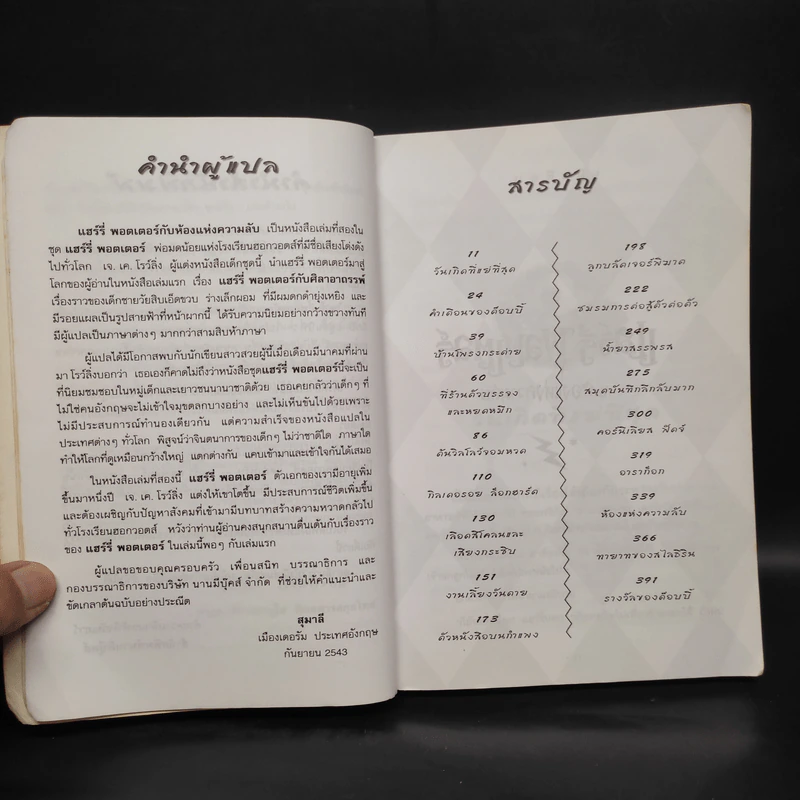 คำนำผู้แปล
แฮร์รี่ พอตเตอร์กับห้องแห่งความลับ เป็นหนังสือเล่มที่สองใน
ชุด แฮร์รี่ พอตเตอร์ พ่อมดน้อยแห่งโรงเรียนฮอกวอตส์ที่มีชื่อเสียงโด่งดัง
ไปทั่วโลก เจ. เค. โรว์ลิ่ง ผู้แต่งหนังสือเด็กชุดนี้ นำแฮร์รี่ พอตเตอร์มาสู่
โลกของผู้อ่านในหนังสือเล่มแรก เรื่อง แฮร์รี่ พอตเตอร์กับศิลาอาถรรพ์
เรื่องราวของเด็กชายวัยสิบเอ็ดขวบ ร่างเล็กผอม ที่มีผมดกดำยุ่งเหยิง และ
มีรอยแผลเป็นรูปสายฟ้าที่หน้าผากนี้ ได้รับความนิยมอย่างกว้างขวางทันที
มีผู้แปลเป็นภาษาต่างๆ มากกว่าสามสิบห้าภาษา
ผู้แปลได้มีโอกาสพบกับนักเขียนสาวสวยผู้นี้เมื่อเดือนมีนาคมที่ผ่าน
มา โรว์ลิ่งบอกว่า เธอเองก็คาดไม่ถึงว่าหนังสือชุดแฮร์รี่ พอตเตอร์นี้จะเป็น
ที่นิยมชมชอบในหมู่เด็กและเยาวชนนานาชาติด้วย เธอเคยกลัวว่าเด็กๆ ที่
ไม่ใช่คนอังกฤษจะไม่เข้าใจมุขตลกบางอย่าง และไม่เห็นขันไปด้วยเพราะ
ไม่มีประสบการณ์ทำนองเดียวกัน แต่ความสำเร็จของหนังสือแปลใน
ประเทศต่างๆ ทั่วโลก พิสูจน์ว่าจินตนาการของเด็กๆ ไม่ว่าชาติใด ภาษาใด
ทำให้โลกที่ดูเหมือนกว้างใหญ่ แตกต่างกัน แคบเข้ามาและเข้าใจกันได้เสมอ
ในหนังสือเล่มที่สองนี้ แฮร์รี่ พอตเตอร์ ตัวเอกของเรามีอายุเพิ่ม
ขึ้นมาหนึ่งปี เจ. เค. โรว์ลิ่ง แต่งให้เขาโตขึ้น มีประสบการณ์ชีวิตเพิ่มขึ้น
และต้องเผชิญกับปัญหาสังคมที่เข้ามามีบทบาทสร้างความหวาดกลัวไป
ทั่วโรงเรียนฮอกวอตส์ หวังว่าท่านผู้อ่านคงสนุกสนานตื่นเต้นกับเรื่องราว
ของ แฮร์รี่ พอตเตอร์ ในเล่มนี้พอๆ กับเล่มแรก
ผู้แปลขอขอบคุณครอบครัว เพื่อนสนิท บรรณาธิการ และ
กองบรรณาธิการของบริษัท นานมีบุ๊คส์ จำกัด ที่ช่วยให้คำแนะนำและ
ขัดเกลาต้นฉบับอย่างประณีต
สุมาลี
เมืองเดอรัม ประเทศอังกฤษ
กันยายน 2543
สารบัญ
11
วันเกิดที่แย่ที่สุด
24
คำเตือนของด๊อบบี้
39
บ้านโพรงกระต่าย
60
ที่ร้านตัวบรรจง
และหยดหมึก
86
ต้นวิลโลว์จอมหวด
110
กิลเดอรอย ล็อกฮาร์ต
130
เลือดสีโคลนและ
เสียงกระซิบ
151
งานเลี้ยงวันตาย
173
ตัวหนังสือบนกำแพง
198
ลูกบลัดเจอร์พิฆาต
222
ชมรมการต่อสู้ตัวต่อตัว
249
น้ำยาสรรพรส
275
สมุดบันทึกลึกลับมาก
300
คอร์นีเลียส ฟัดจ์
319
อาราก็อก
339
ห้องแห่งความลับ
366
ทายาทของสลิธีริน
391
รางวัลของด๊อบบี้